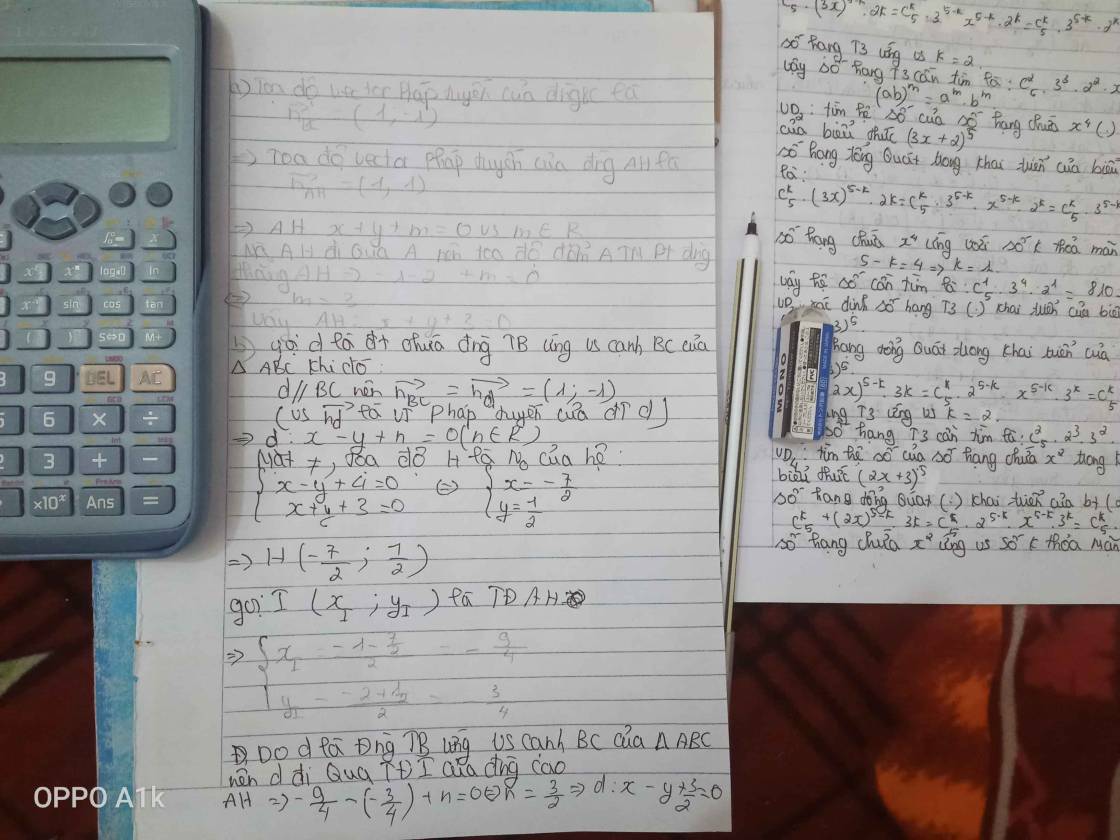 a) Toạ độ vector pháp tuyến của đtg BC là
n_BC = (1, -1)
=> Toạ độ vector pháp tuyến của đng AH là
n_AH = (1, 1)
=> AH x + y + m = 0 vs m ∈ R
Mà AH đi qua A nên toạ độ điểm A TM Pt đng
thẳng AH => -1 - 2 + m = 0
<=> m = 3
Vậy AH: x + y + 3 = 0
b) gọi d là đt chứa đng TB ứng vs cạnh BC của
Δ ABC khi đó:
d // BC nên n_BC = n_d = (1; -1)
(vs n_d là VT pháp tuyến của đt d)
=> d: x - y + n = 0 (n ∈ R)
Mặt ≠, toạ độ H là No của hệ:
{ x - y + 4 = 0 <=> { x = -7/2
x + y + 3 = 0 y = 1/2
=> H (-7/2 ; 1/2)
gọi I (x_I ; y_I) là TĐ AH
=> { x_I = (-1 - 7/2)/2 = -9/4
y_I = (-2 + 1/2)/2 = 3/4
Do d là đng TB ứng vs cạnh BC của Δ ABC
nên d đi qua TĐ I của đng cao
AH => -9/4 - (-3/4) + n = 0 <=> n = 3/2 => d: x - y + 3/2 = 0
C_5^k . (3x)^5-k . 2k = C_5^k . 3^5-k x^5-k . 2^k = C_5^k . 3^5-k . 2^k
số hạng T3 ứng vs k = 2.
Vậy số hạng T3 cần tìm là: C_5^2 . 3^3 . 2^2 .
(ab)^m = a^m . b^m
VD2: tìm hệ số của số hạng chứa x^4 (.)
của biểu thức (3x + 2)^5
số hạng tổng quát trong khai triển của biểu
là:
C_5^k . (3x)^5-k . 2k = C_5^k . 3^5-k x^5-k . 2^k = C_5^k . 3^5-k
số hạng chứa x^4 ứng với số k thoả mãn
5 - k = 4 => k = 1.
Vậy hệ số cần tìm là: C_5^1 . 3^4 . 2^1 = 810.
xác định số hạng T3 (.) khai triển của biểu
3)^5
hạng tổng quát trong khai triển của
)^5.
2x)^5-k . 3k = C_5^k . 2^5-k . x^5-k . 3^k = C_5^k
T3 ứng vs k = 2
số hạng T3 cần tìm là: C_5^2 . 2^3 . 3^2
VD4: tìm hệ số của số hạng chứa x^2 trong
biểu thức (2x + 3)^5
số hạng tổng quát (.) khai triển của bt
C_5^k + (2x)^5-k . 3k = C_5^k . 2^5-k . x^5-k . 3^k = C_5^k
số hạng chứa x^2 ứng vs số k thỏa mãn
DEL AC
9
6 × ÷
2 3 + −
×10^x Ans
log ln
sin cos tan
( ) S⇔D M+
OZONO
OPPO A1k